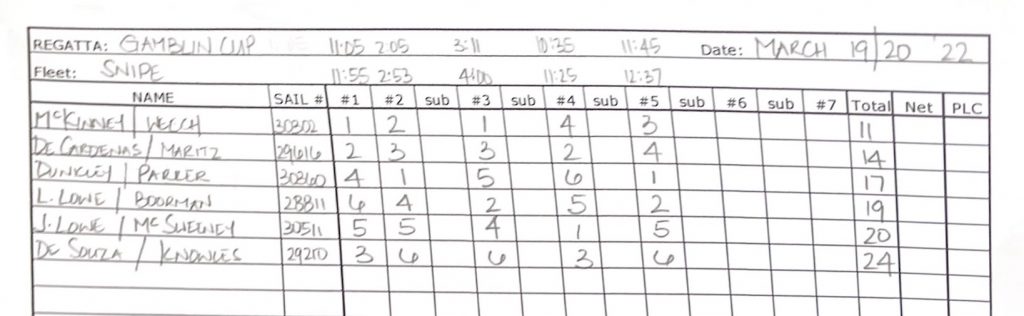 REGATTA: GAMBLIN CUP 11:05 2:05 3:11 10:35 11:45 Date: MARCH 19/20 '22
Fleet: SNIPE 11:55 2:53 4:00 11:25 12:37
NAME SAIL # #1 #2 sub #3 sub #4 sub #5 sub #6 sub #7 Total Net PLC
McKINNEY / WELCH 30802 1 2 1 4 3 11
DE CARDENAS / MARITZ 29616 2 3 3 2 4 14
DUNKLEY / PARKER 30860 4 1 5 6 1 17
L. LOWE / BOORMAN 28811 6 4 2 5 2 19
J. LOWE / McSWEENEY 30511 5 5 4 1 5 20
DE SOUZA / KNOWLES 29210 3 6 6 3 6 24